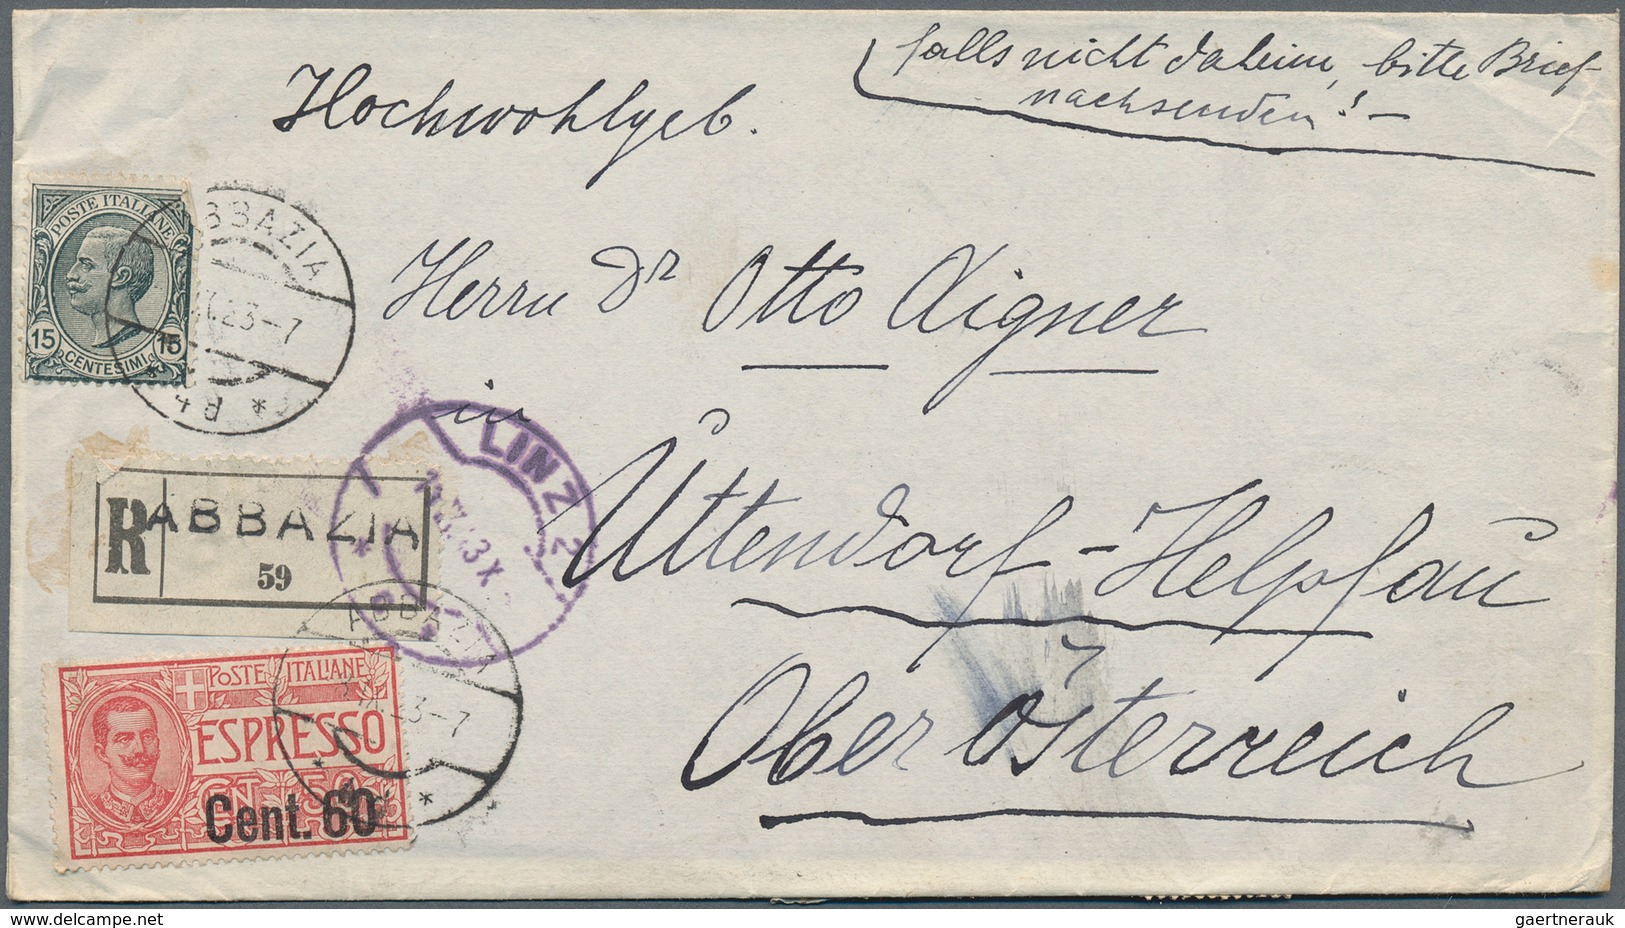 falls nicht daheim, bitte Brief-
nachsenden! –
Hochwohlgeb.
POSTE ITALIANE
15 15
CENTESIMI
ABBAZIA
23-7
Herrn Dr Otto Aigner
in
LINZ 2
Uttendorf-Helpfau
Ober Österreich
R ABBAZIA
59
ABBAZIA
23-7
POSTE ITALIANE
ESPRESSO
CENT. 50
Cent. 60
gaertnerauk@delcampe.net